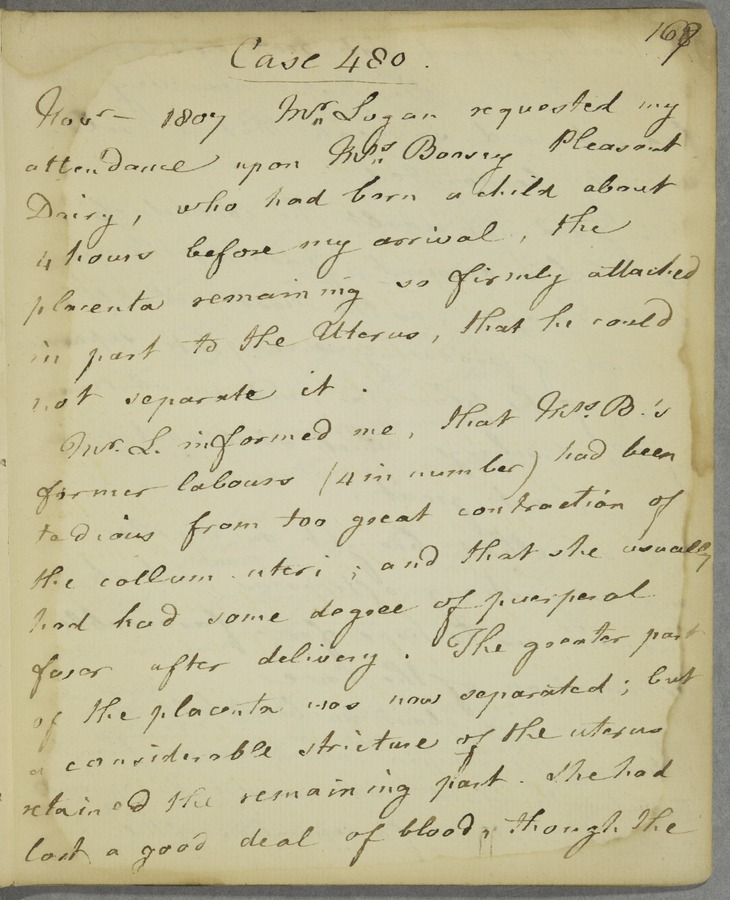 168
Case 480.
Novr 1807 Mr Logan requested my
attendance upon Mrs Pleasant
Dairy, who had born a child about
4 hours before my arrival, the
placenta remaining so firmly attached
in part to the Uterus, that he could
not separate it.
Mr. L. informed me, that Mrs. B.'s
former labours (4 in number) had been
tedious from too great contraction of
the collum uteri; and that she usually
had had some degree of puerperal
fever after delivery. The greater part
of the placenta was now separated; but
a considerable stricture of the uterus
retained the remaining part. She had
lost a good deal of blood, though the